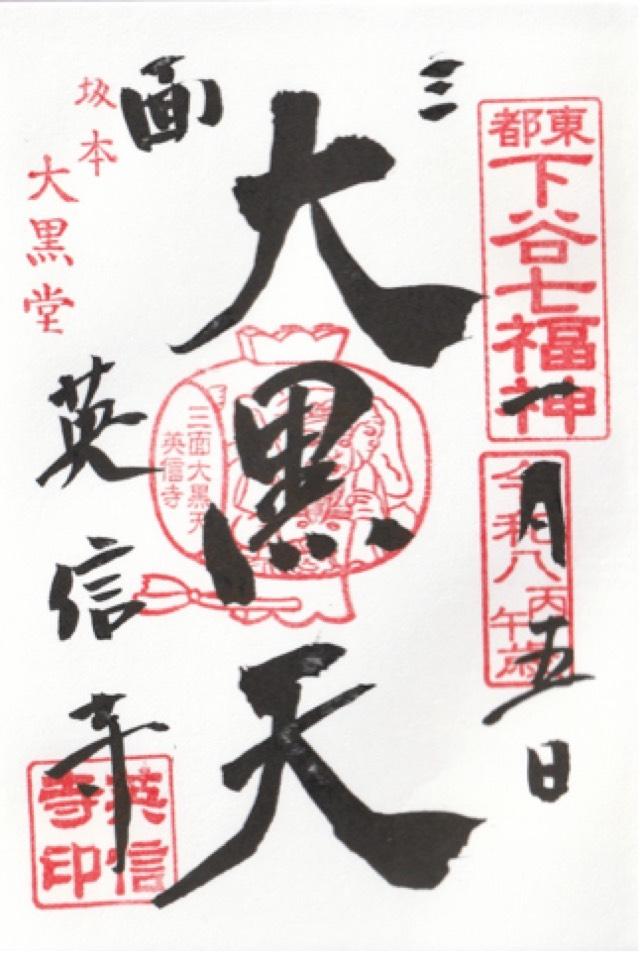 東都
下谷七福神
令和八丙午歳
一月五日
三面
大黒天
三面大黒天
英信寺
坂本
大黒堂
英信寺
英信
寺印